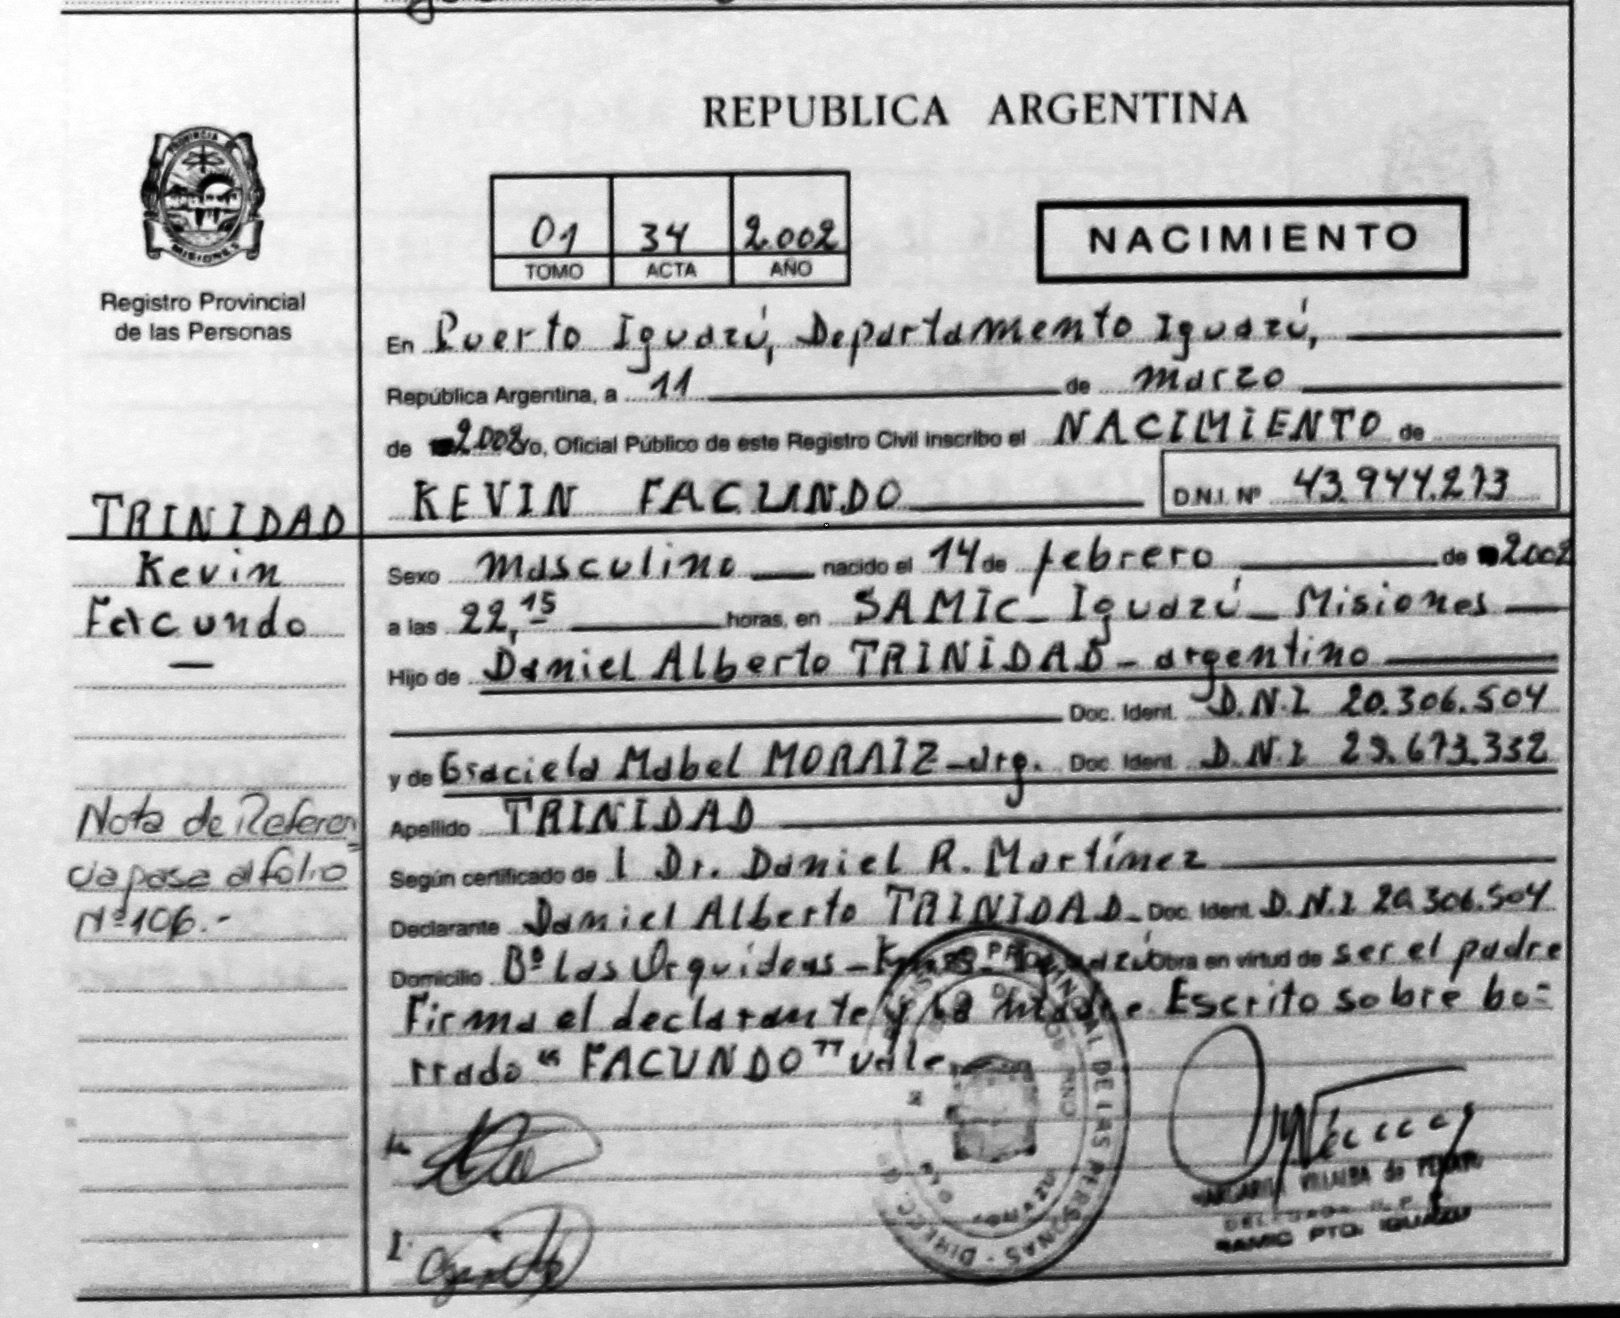 REPUBLICA ARGENTINA
PROVINCIA DE
MISIONES
Registro Provincial
de las Personas
01 34 2.002
TOMO ACTA AÑO
NACIMIENTO
En Puerto Iguazú, Departamento Iguazú,
República Argentina, a 11 de marzo
de 2.002 yo, Oficial Público de este Registro Civil inscribo el NACIMIENTO de
KEVIN FACUNDO D.N.I. Nº 43.944.273
TRINIDAD
Kevin
Facundo
Sexo masculino nacido el 14 de febrero de 2002
a las 22,15 horas, en SAMIC - Iguazú - Misiones
Hijo de Daniel Alberto TRINIDAD - argentino
Doc. Ident. D.N.I 20.306.504
y de Graciela Mabel MORAIZ - arg. Doc. Ident. D.N.I 29.673.332
Apellido TRINIDAD
Según certificado de l Dr. Daniel R. Martínez
Declarante Daniel Alberto TRINIDAD - Doc. Ident. D.N.I 20.306.504
Domicilio Bº Las Orquídeas - Iguazú Obra en virtud de ser el padre
Firma el declarante y la madre Escrito sobre bo=
rrado "FACUNDO" vale
Nota de Referen
cia pasa al folio
Nº 106.-
PROVINCIAL DE LAS PERSONAS - DIRECC
MARGARITA VILLALBA de
SAMIC PTO. IGUAZU